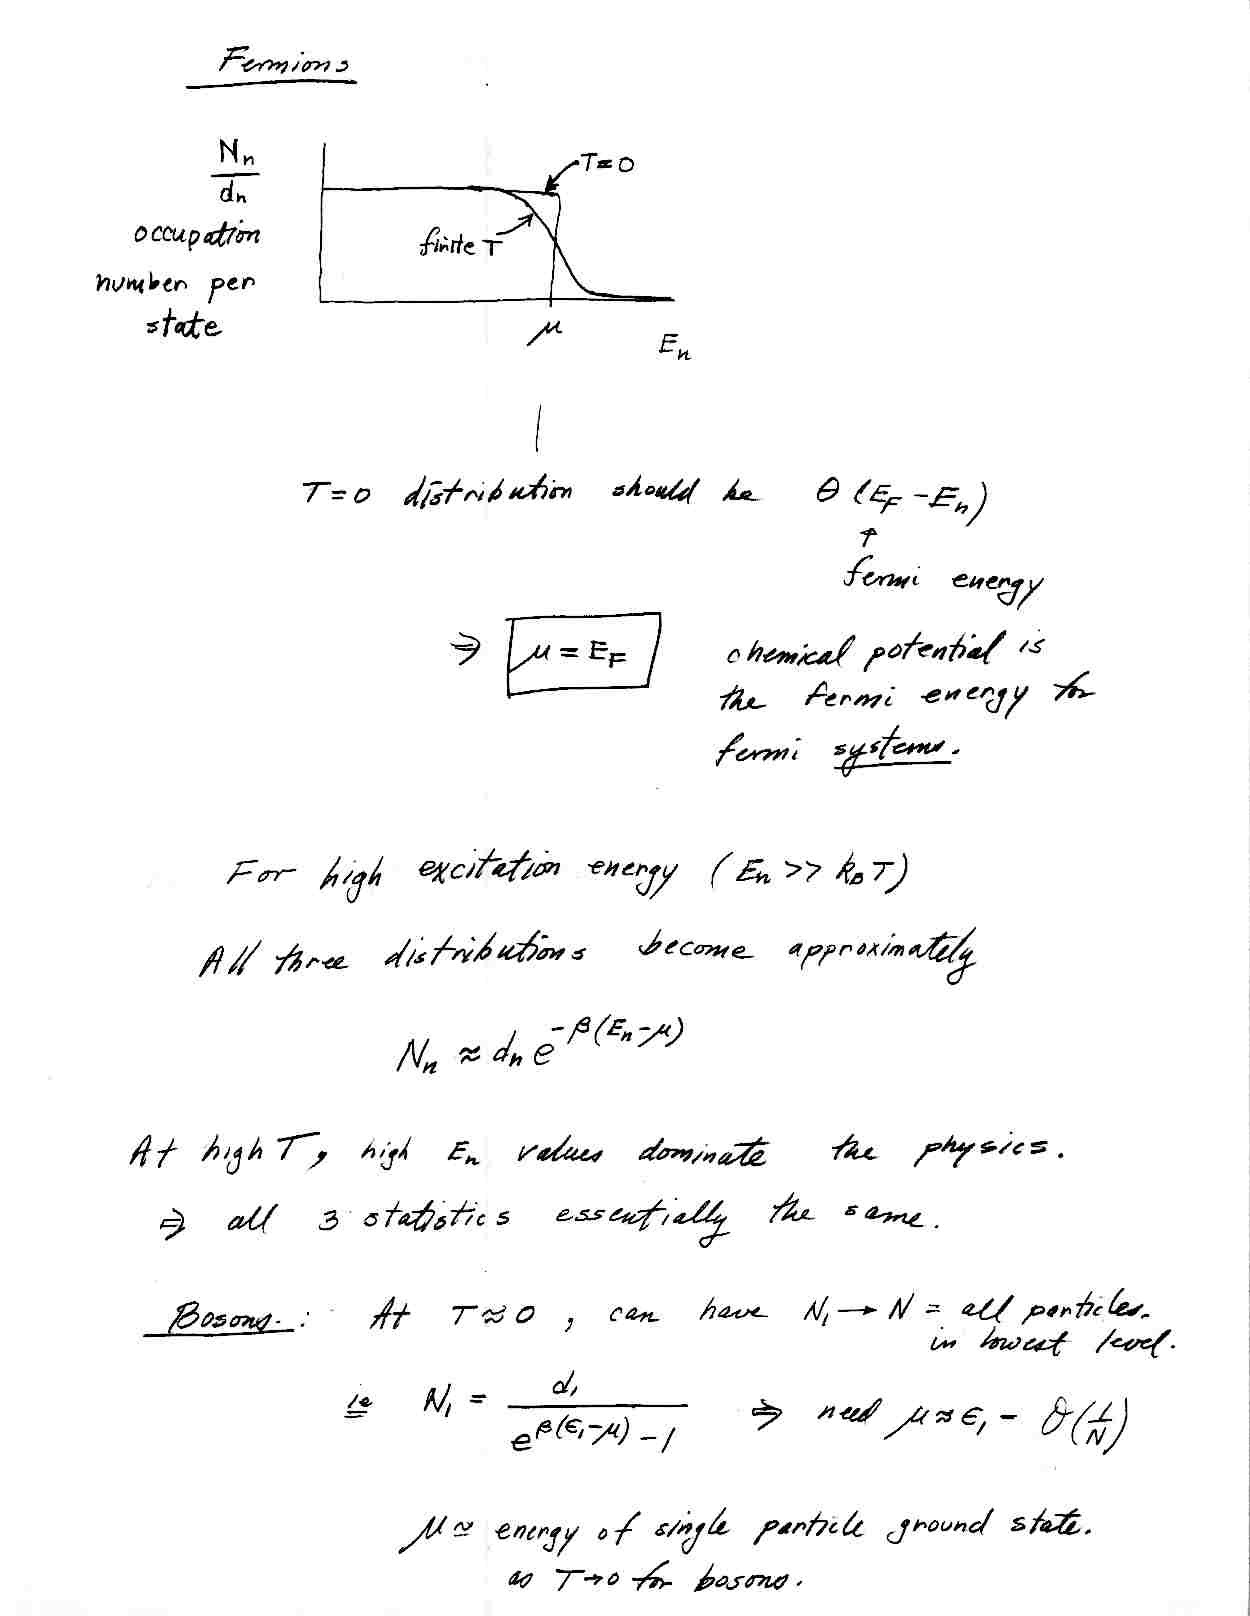 Fermions
N_n / d_n
occupation
number per
state
T=0
finite T
μ
E_n
T=0 distribution should be θ(E_F - E_n)
↑
fermi energy
⇒ μ = E_F chemical potential is
the fermi energy for
fermi systems.
For high excitation energy (E_n >> k_B T)
All three distributions become approximately
N_n ≈ d_n e^{-β(E_n-μ)}
At high T, high E_n values dominate the physics.
⇒ all 3 statistics essentially the same.
Bosons: At T≈0, can have N_1 → N = all particles.
in lowest level.
ie N_1 = d_1 / (e^{β(ϵ_1-μ)} - 1) ⇒ need μ ≈ ϵ_1 - O(1/N)
μ ≃ energy of single particle ground state.
as T→0 for bosons.